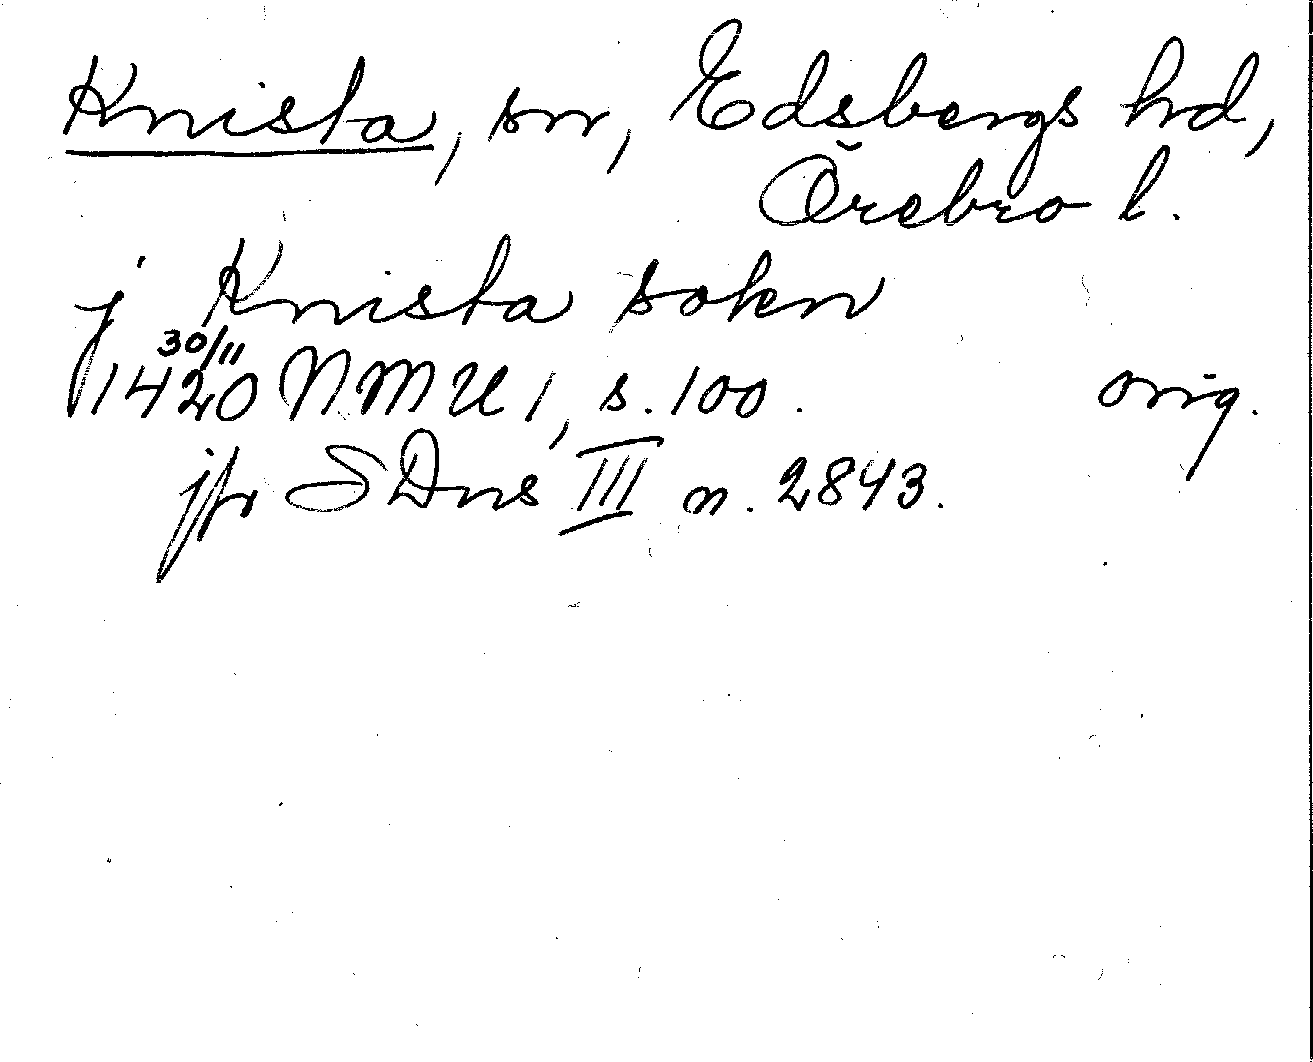 Knista, sn, Edsbergs hd,
Örebro l.
j Knista sokn
30/11
1420 NMU 1, s. 100. orig.
jfr SDns III n. 2843.